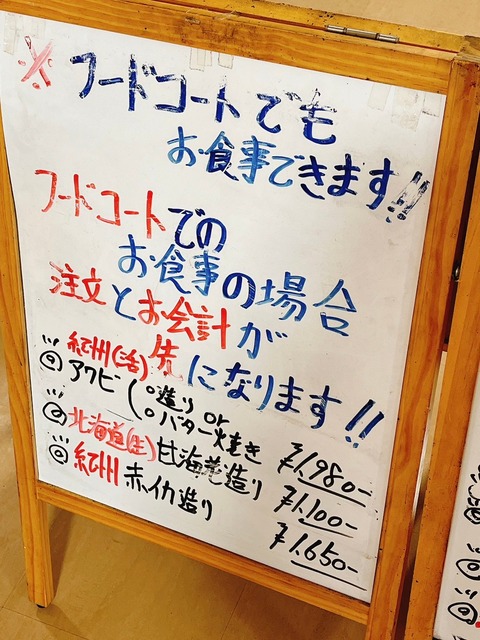 ※フードコートでも
お食事できます!!
フードコートでの
お食事の場合
注文とお会計が
先になります!!
紀州(活)
アワビ(○造り or
○バター焼き ¥1,980-
北海道(生)甘海老造り ¥1,100-
紀州 赤イカ造り ¥1,650-